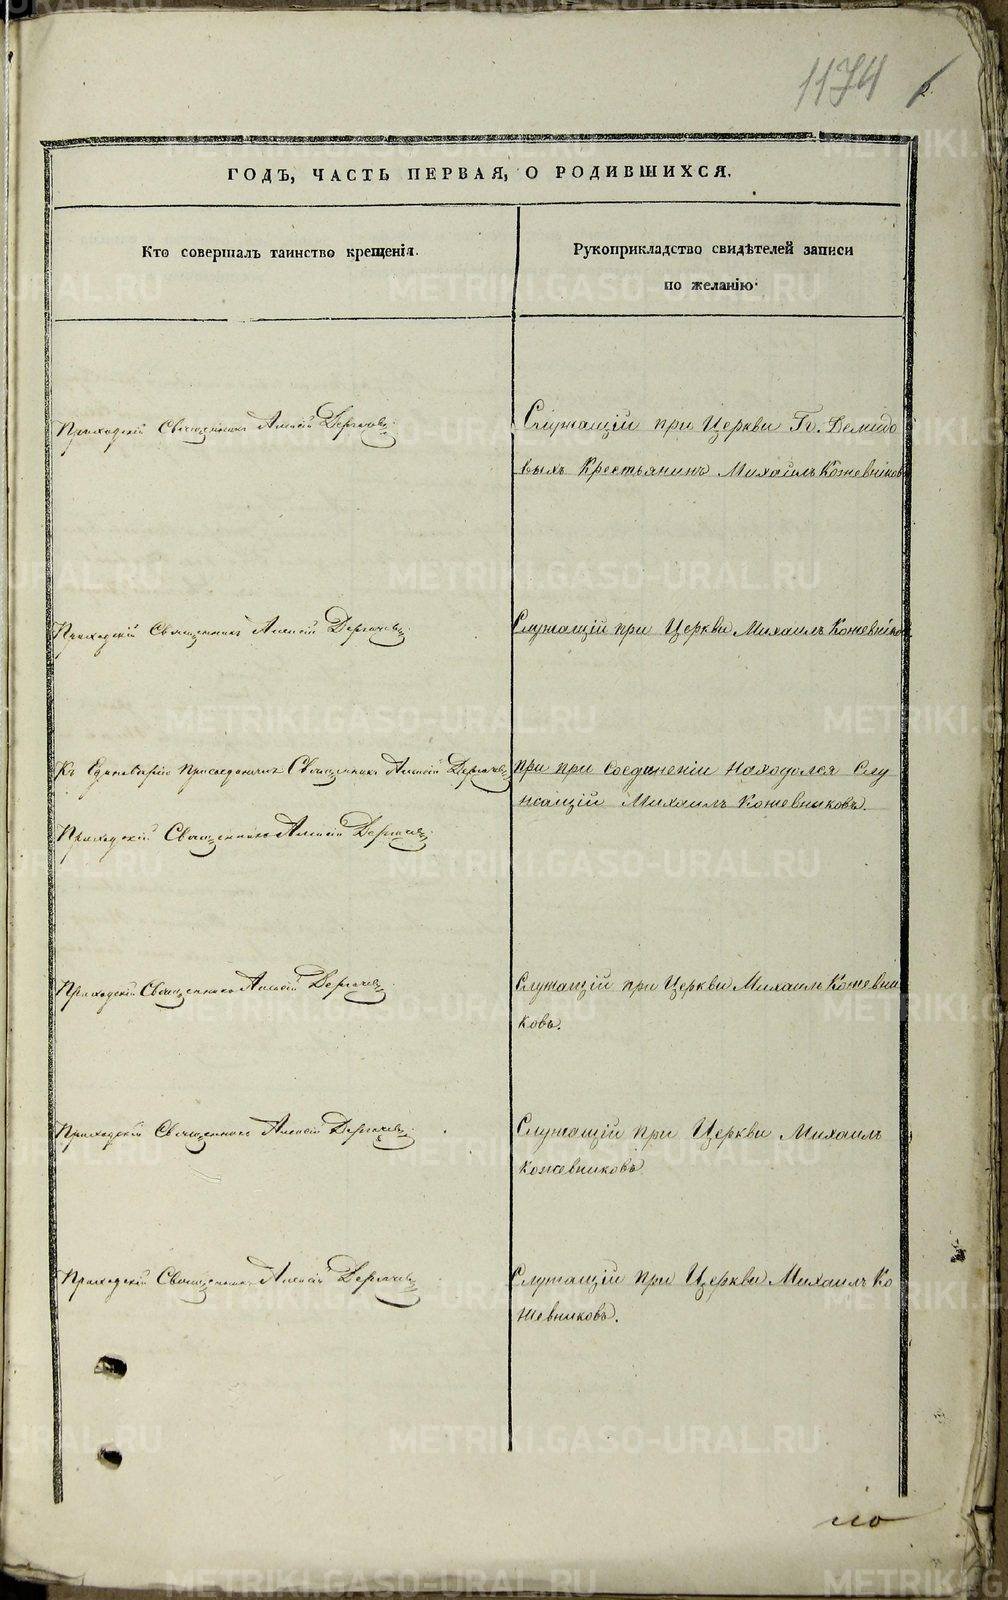 1174
2
ГОДЪ, ЧАСТЬ ПЕРВАЯ, О РОДИВШИХСЯ.
Кто совершалъ таинство крещенія.
Рукоприкладство свидѣтелей записи
по желанію.
Приходскій Священникъ Алексій Дергачевъ.
Служащій при Церкви Гг. Демидо
выхъ Крестьянинъ Михаилъ Кожевниковъ
Приходскій Священникъ Алексій Дергачевъ.
Служащій при Церкви Михаилъ Кожевников
Къ Единовѣрію присоединилъ Священникъ Алексій Дергачевъ
при при соединеніи находолся Слу
жащій Михаилъ Кожевниковъ.
Приходскій Священникъ Алексій Дергачевъ.
Приходскій Священникъ Алексій Дергачевъ.
Служащій при Церкви Михаилъ Кожевни
ковъ.
Приходскій Священникъ Алексій Дергачевъ.
Служащій при Церкви Михаилъ
Кожевниковъ
Приходскій Священникъ Алексій Дергачевъ.
Служащій при Церкви Михаилъ Ко
жевниковъ.
METRIKI.GASO-URAL.RU